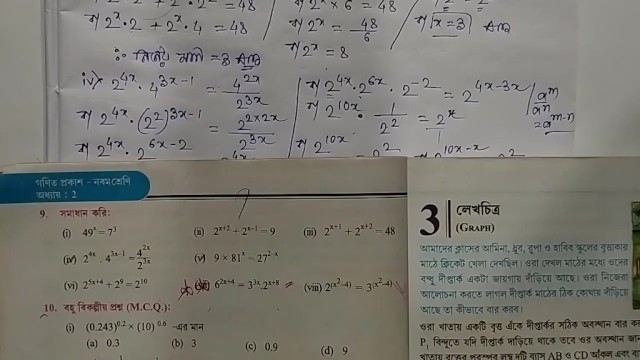 2ˣ·2 + 2ˣ·4 = 48
2ˣ × 6 = 48
বা 2ˣ = 48/6
বা 2ˣ = 8
বা x = 3 Ans
∴ নির্ণেয় মান = 3 Ans
iv) 2⁴ˣ · 4³ˣ⁻¹ = 4²ˣ/2³ˣ
বা 2⁴ˣ · (2²)³ˣ⁻¹ = 2²ˣ²ˣ/2³ˣ
বা 2⁴ˣ · 2⁶ˣ⁻²
বা 2⁴ˣ · 2⁶ˣ · 2⁻² = 2⁴ˣ⁻³ˣ
বা 2¹⁰ˣ · 1/2² = 2ˣ
বা 2¹⁰ˣ
aᵐ/aⁿ = aᵐ⁻ⁿ
গণিত প্রকাশ - নবম শ্রেণি
অধ্যায় : 2
9. সমাধান করি:
(i) 49ˣ = 7³ (ii) 2ˣ⁺² + 2ˣ⁻¹ = 9 (iii) 2ˣ⁺¹ + 2ˣ⁺² = 48
(iv) 2⁴ˣ . 4³ˣ⁻¹ = 4²ˣ/2³ˣ (v) 9 × 81ˣ = 27²⁻ˣ
(vi) 2⁵ˣ⁺⁴ + 2⁹ = 2¹⁰ (vii) 6²ˣ⁺⁴ = 3³ˣ 2ˣ⁺⁸ (viii) 2⁽ˣ²⁻⁴⁾ = 3⁽ˣ²⁻⁴⁾
10. বহু বিকল্পীয় প্রশ্ন (M.C.Q.):
(i) (0.243)⁰·² × (10)⁰·⁶ -এর মান
(a) 0.3 (b) 3 (c) 0.9 (d) 9
3 লেখচিত্র
(GRAPH)
আমাদের ক্লাসের আমিনা, ধ্রুব, রূপা ও হাবিব স্কুলের বৃত্তাকার
মাঠে ক্রিকেট খেলা দেখছিল। ওরা দেখল মাঠের মধ্যে ওদের
বন্ধু দীপ্তার্ক একটা জায়গায় দাঁড়িয়ে আছে। ওরা নিজেরা
আলোচনা করতে লাগল দীপ্তার্ক মাঠের ঠিক কোথায় দাঁড়িয়ে
আছে তা কীভাবে বার করব।
ওরা খাতায় একটি বৃত্ত এঁকে দীপ্তার্কর সঠিক অবস্থান বার
P, বিন্দুতে যদি দীপ্তার্ক দাঁড়িয়ে থাকে তবে ওর অবস্থান